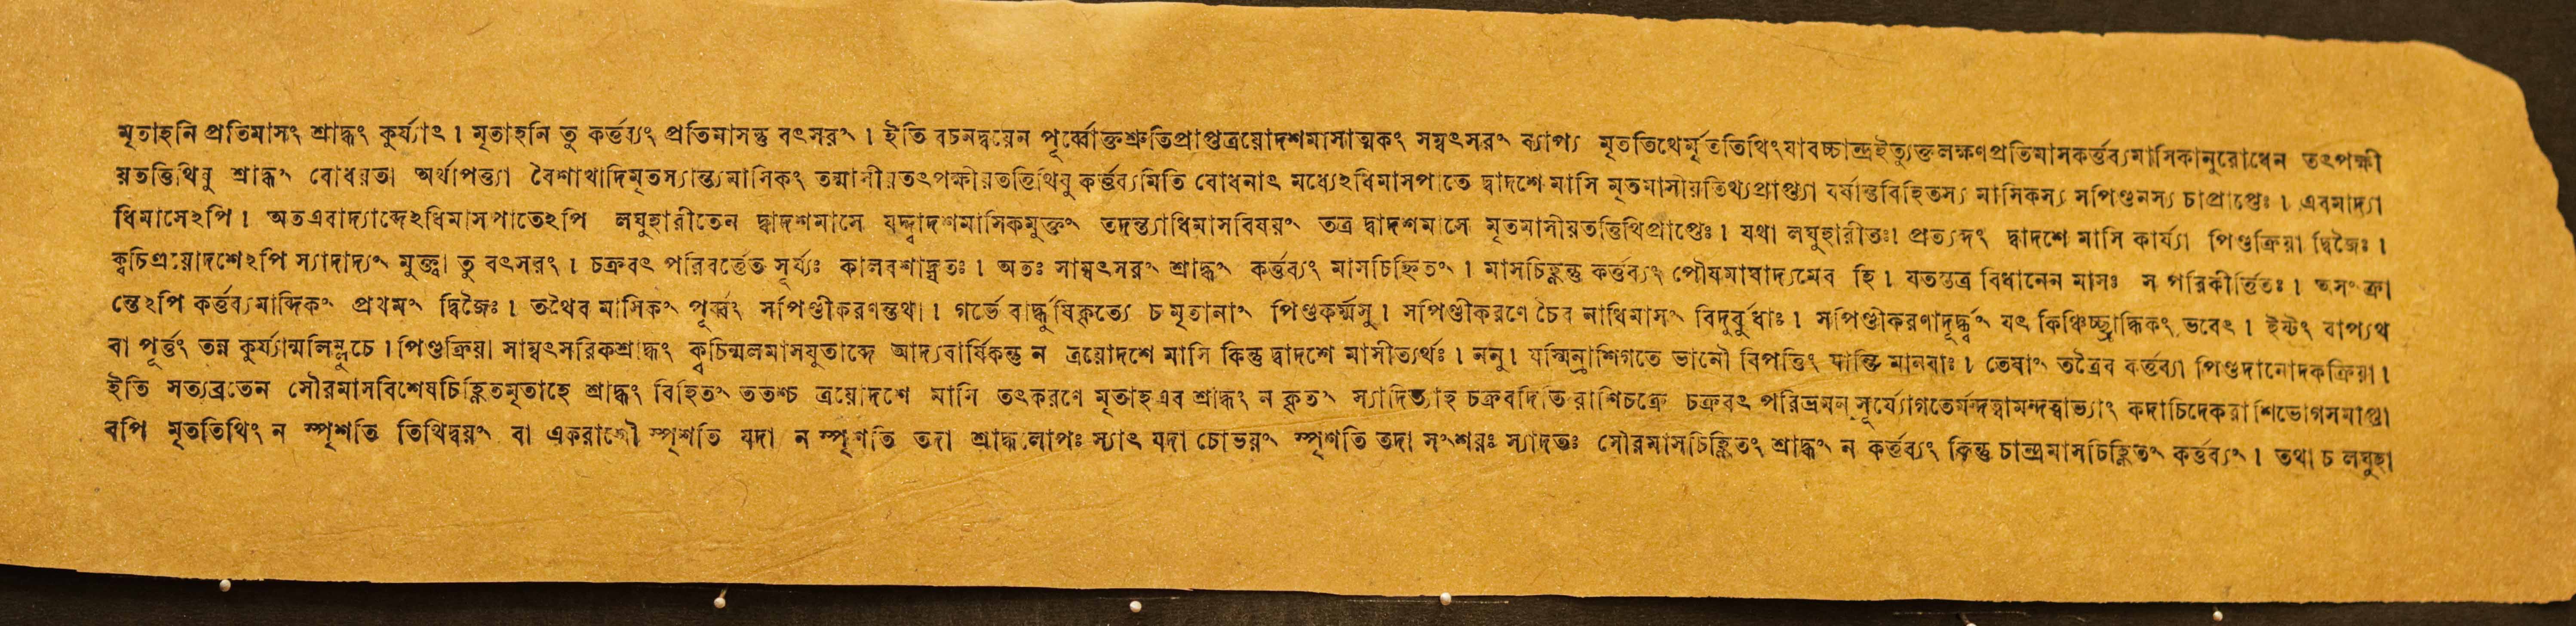 মৃতাহনি প্রতিমাসং শ্রাদ্ধং কুর্য্যাৎ । মৃতাহনি তু কর্ত্তব্যং প্রতিমাসন্তু বৎসরং । ইতি বচনদ্বয়েন পূর্ব্বোক্তশ্রুতিপ্রাপ্তত্রয়োদশমাসাত্মকং সম্বৎসরং ব্যাপ্য মৃততিথের্মৃততিথিংযাবচ্চান্দ্রইত্যুক্তলক্ষণপ্রতিমাসকর্ত্তব্যমাসিকানুরোধেন তৎপক্ষী
য়তত্তিথিষু শ্রাদ্ধং বোধয়তা অর্থাপত্ত্যা বৈশাখাদিমৃতস্যান্ত্যমাসিকং তন্মাসীয়তৎপক্ষীয়তত্তিথিষু কর্ত্তব্যমিতি বোধনাৎ মধ্যেঽধিমাসপাতে দ্বাদশে মাসি মৃতমাসীয়তিথ্যপ্রাপ্ত্যা বর্ষান্তবিহিতস্য মাসিকস্য সপিণ্ডনস্য চাপ্রাপ্তেঃ । এবমাদ্যা
ধিমাসেঽপি । অতএবাদ্যাব্দেঽধিমাসপাতেঽপি লঘুহারীতেন দ্বাদশমাসে যদ্দ্বাদশমাসিকমুক্তং তদন্ত্যাধিমাসবিষয়ং তত্র দ্বাদশমাসে মৃতমাসীয়তত্তিথিপ্রাপ্তেঃ । যথা লঘুহারীতঃ। প্রত্যব্দং দ্বাদশে মাসি কার্য্যা পিণ্ডক্রিয়া দ্বিজৈঃ ।
ক্বচিত্রয়োদশেঽপি স্যাদাদ্যং মুক্ত্বা তু বৎসরং । চক্রবৎ পরিবর্ত্তেত সূর্য্যঃ কালবশাদ্যতঃ । অতঃ সাম্বৎসরং শ্রাদ্ধং কর্ত্তব্যং মাসচিহ্নিতং । মাসচিহ্নন্তু কর্ত্তব্যং পৌষমাঘাদ্যমেব হি । যতস্তত্র বিধানেন মাসঃ স পরিকীর্ত্তিতঃ । অসংক্রা
ন্তেঽপি কর্ত্তব্যমাব্দিকং প্রথমং দ্বিজৈঃ । তথৈব মাসিকং পূর্ব্বং সপিণ্ডীকরণন্তথা । গর্ভে বার্দ্ধুষিকৃত্যে চ মৃতানাং পিণ্ডকর্ম্মসু । সপিণ্ডীকরণে চৈব নাধিমাসং বিদুর্বুধাঃ । সপিণ্ডীকরণাদূর্দ্ধ্বং যৎ কিঞ্চিচ্ছ্রাদ্ধিকং ভবেৎ । ইষ্টং বাপ্যথ
বা পূর্ত্তং তন্ন কুর্য্যান্মলিম্লুচে । পিণ্ডক্রিয়া সাম্বৎসরিকশ্রাদ্ধং ক্বচিন্মলমাসযুতাব্দে আদ্যবার্ষিকন্তু ন ত্রয়োদশে মাসি কিন্তু দ্বাদশে মাসীত্যর্থঃ । ননু । যস্মিন্রাশিগতে ভানৌ বিপত্তিং যান্তি মানবাঃ । তেষাং তত্রৈব কর্ত্তব্যা পিণ্ডদানোদকক্রিয়া ।
ইতি সত্যব্রতেন সৌরমাসবিশেষচিহ্নিতমৃতাহে শ্রাদ্ধং বিহিতং ততশ্চ ত্রয়োদশে মাসি তৎকরণে মৃতাহ এব শ্রাদ্ধং ন কৃতং স্যাদিত্যাহ চক্রবদিতি রাশিচক্রে চক্রবৎ পরিভ্রমন্ সূর্য্যোগতের্মন্দত্বামন্দত্বাভ্যাং কদাচিদেকরাশিভোগসমাপ্তা
বপি মৃততিথিং ন স্পৃশতি তিথিদ্বয়ং বা একরাশৌ স্পৃশতি যদা ন স্পৃশতি তদা শ্রাদ্ধলোপঃ স্যাৎ যদা চোভয়ং স্পৃশতি তদা সংশয়ঃ স্যাদতঃ সৌরমাসচিহ্নিতং শ্রাদ্ধং ন কর্ত্তব্যং কিন্তু চান্দ্রমাসচিহ্নিতং কর্ত্তব্যং । তথা চ লঘুহা